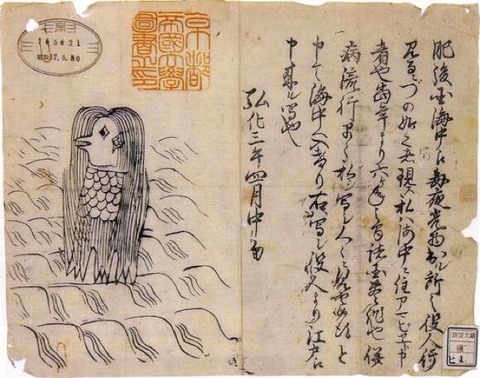 肥後国海中え毎夜光物出ル所之役人行
見るニづの如く者現ス私ハ海中ニ住アマビヱト申
者也当年より六ヶ年之間諸国豊作也併
病流行早々私ヲ写シ人々ニ見せ候得と
申て海中へ入けり右写シ役人より江戸え
申来ル写也
弘化三年四月中旬
京都帝國大學圖書之印
昭和17.5.30